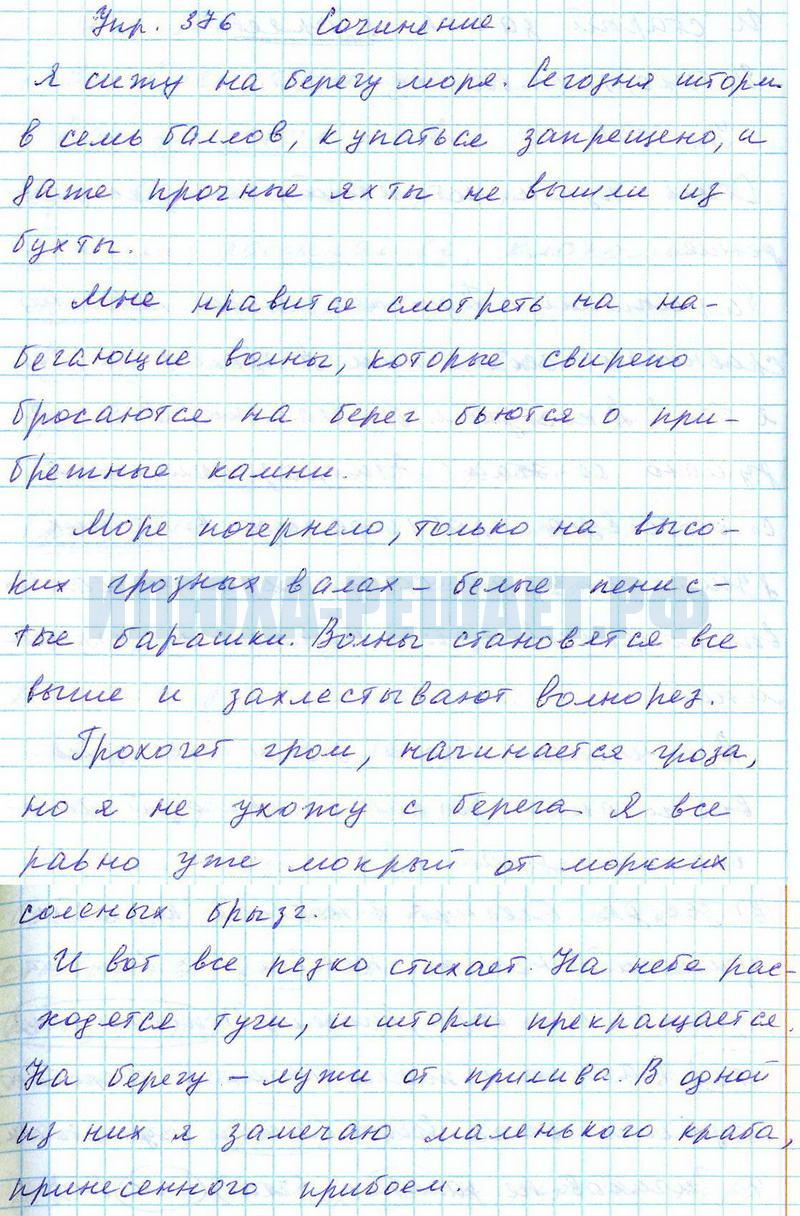 Упр. 376 Сочинение.
Я сижу на берегу моря. Сегодня шторм
в семь баллов, купаться запрещено, и
даже прочные яхты не вышли из
бухты.
Мне нравится смотреть на на-
бегающие волны, которые свирепо
бросаются на берег бьются о при-
брежные камни.
Море почернело, только на высо-
ких грозных валах – белые пенис-
тые барашки. Волны становятся все
выше и захлестывают волнорез.
Грохочет гром, начинается гроза,
но я не ухожу с берега Я все
равно уже мокрый от морских
соленых брызг.
И вот все резко стихает. На небе рас-
ходятся тучи, и шторм прекращается.
На берегу – лужи от прилива. В одной
из них я замечаю маленького краба,
принесенного прибоем.
ИЛЮХА-РЕШАЕТ.РФ